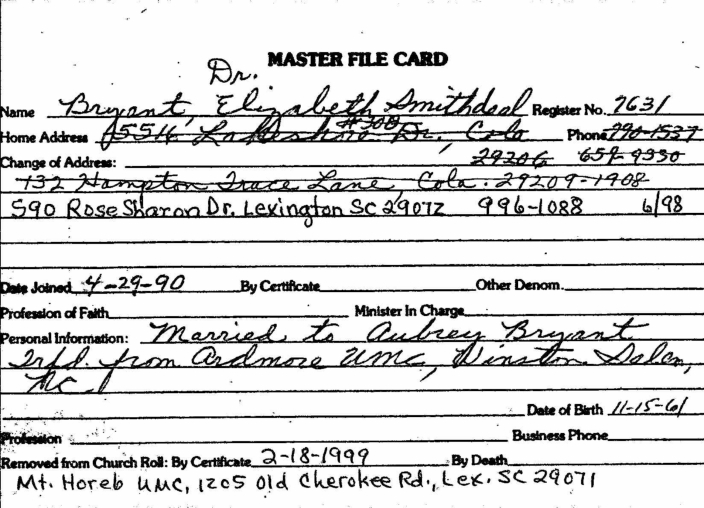 MASTER FILE CARD
Dr.
Name Bryant, Elizabeth Smithdeal Register No. 7631
#308
Home Address 5516 Lakeshore Dr., Cola Phone 790-1537
Change of Address: 29206 659-9330
732 Hampton Trace Lane, Cola. 29209-1908
590 Rose Sharon Dr. Lexington SC 29072 996-1088 6/98
Date Joined 4-29-90 By Certificate Other Denom.
Profession of Faith Minister In Charge
Personal Information: Married to Aubrey Bryant
Trfd. from Ardmore UMC, Winston Salem,
NC
Date of Birth 11-15-61
Profession Business Phone
Removed from Church Roll: By Certificate 2-18-1999 By Death
Mt. Horeb UMC, 1205 Old Cherokee Rd., Lex. SC 29071